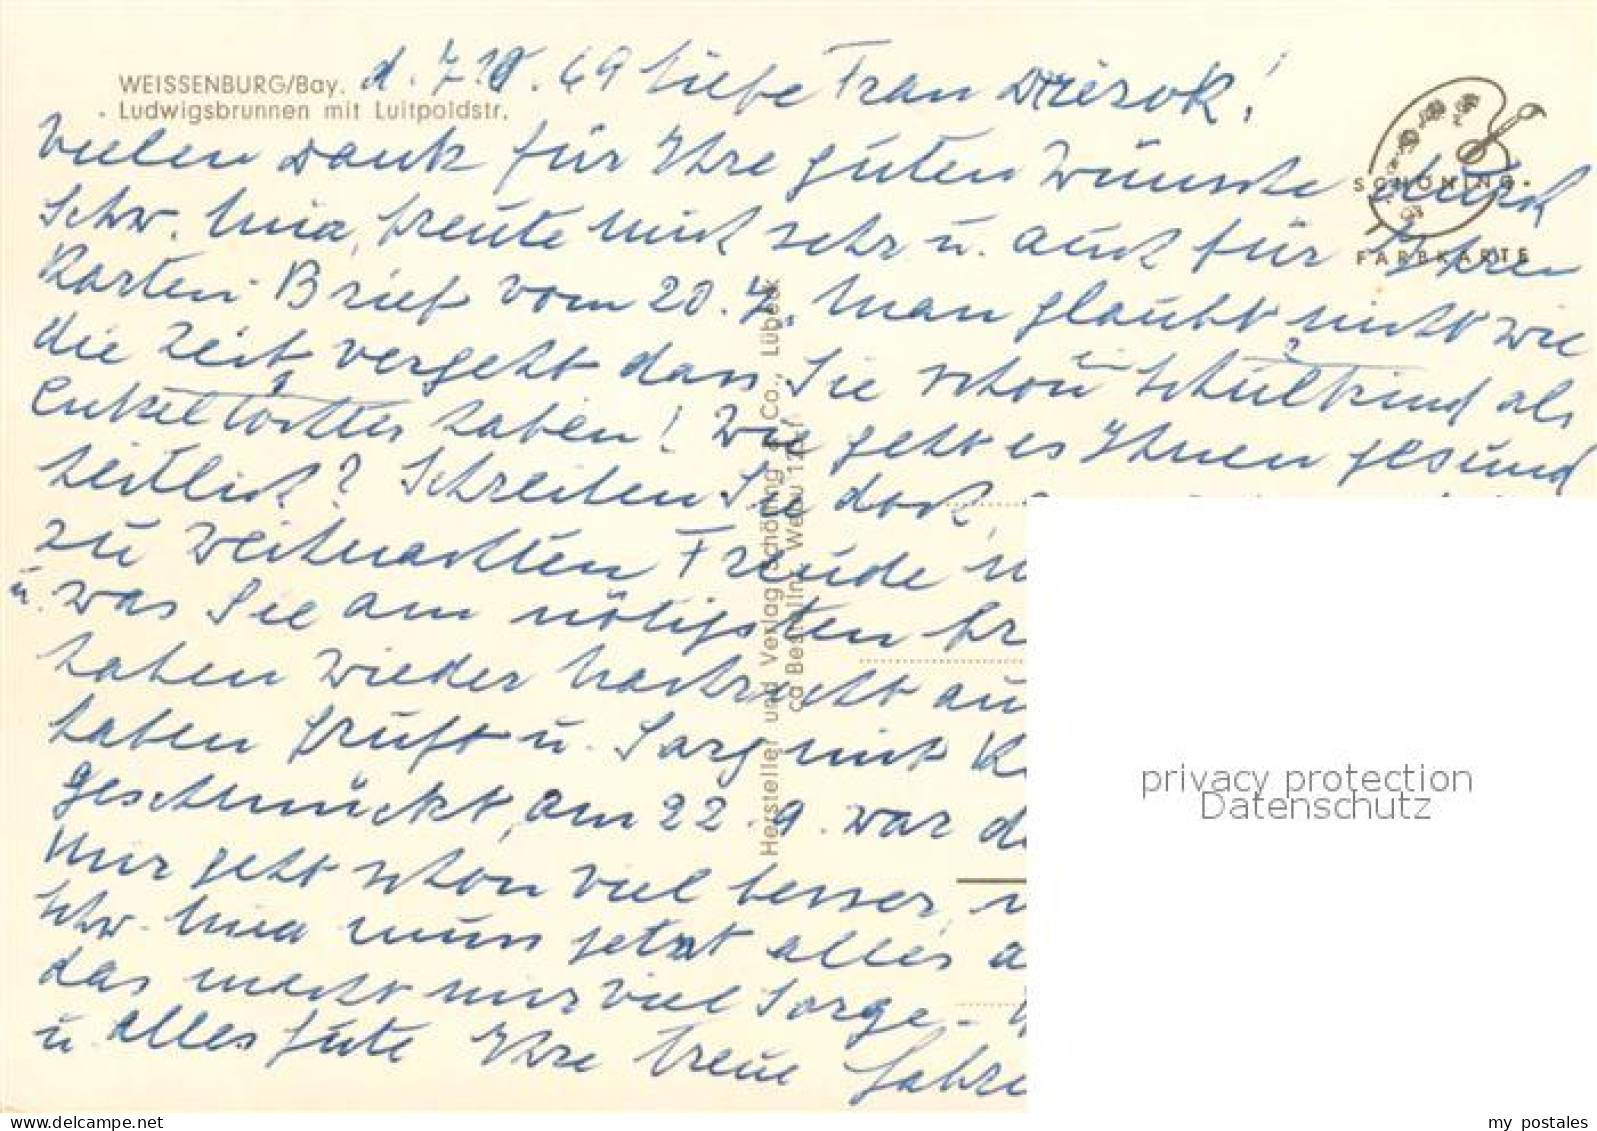 WEISSENBURG/Bay.
Ludwigsbrunnen mit Luitpoldstr.
d. 7.10.69 Liebe Frau
Vielen Dank für Ihre guten Wünsche durch
Schw. Mia, freute mich sehr u. auch für Ihren
Karten-Brief vom 20.7. Man glaubt nicht wie
die Zeit vergeht dass Sie schon ein Schulkind als
Enkeltochter haben! Wie geht es Ihnen gesund
heitlich? Schreiben Sie doch,
zu Weihnachten Freude
u. was Sie am nötigsten
haben wieder Nachricht
haben Gruft u. Sarg mit
geschmückt, am 22.9. war
Mir geht schon viel besser,
Schw. Mia nun jetzt alles
das macht mir viel Sorge -
u. alles Gute Ihre treue
SCHÖNING
FARBKARTE
Hersteller und Verlag Schöning & Co., Lübeck
privacy protection
Datenschutz
my postales